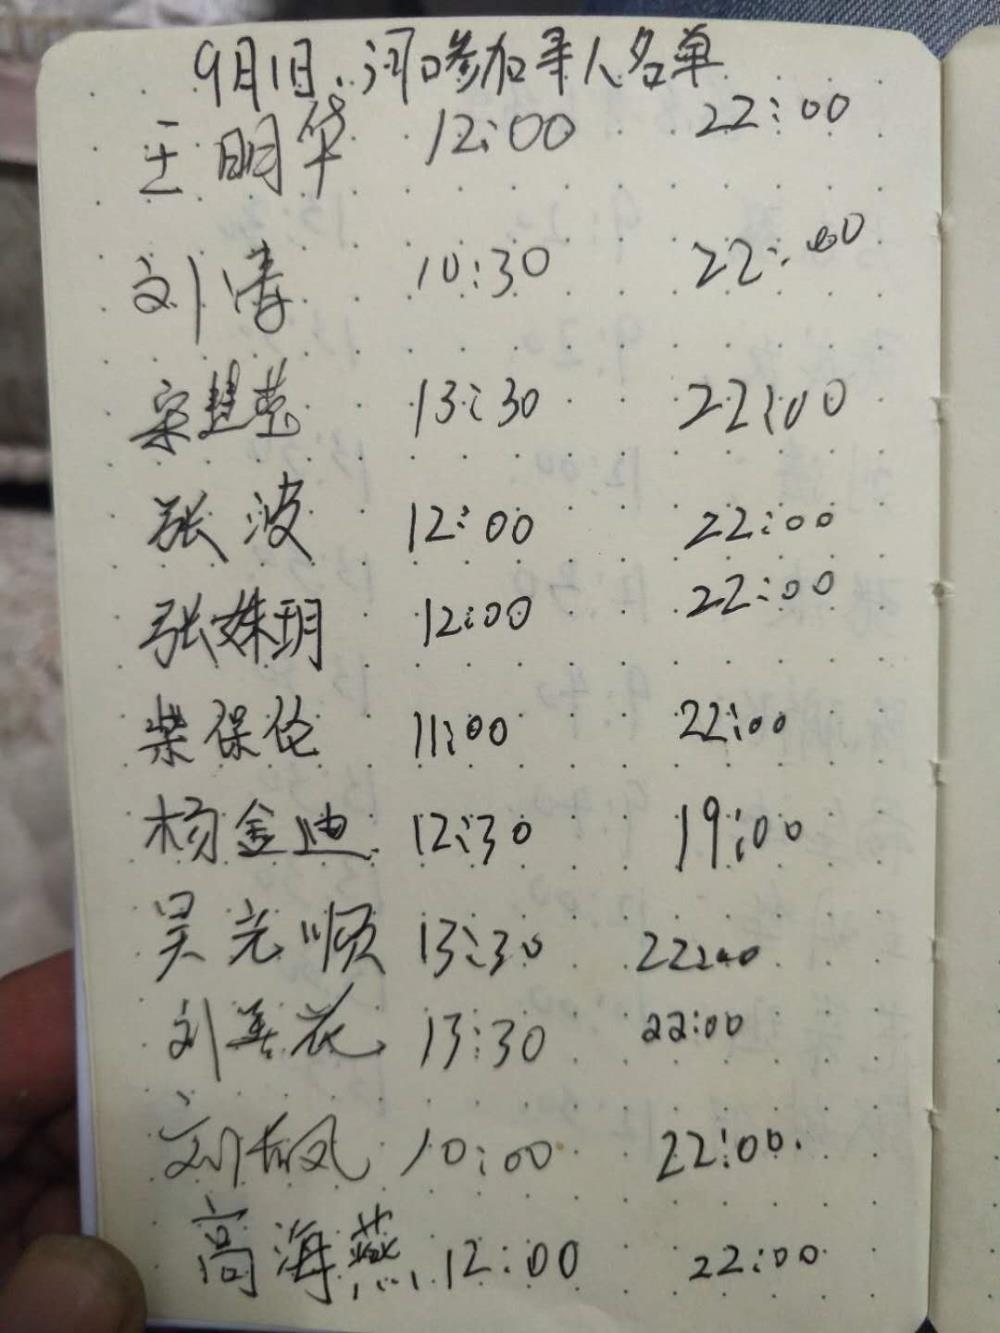 9月1日.河口参加寻人名单
王明华 12:00 22:00
刘涛 10:30 22:00
宋慧莹 13:30 22:00
张波 12:00 22:00
张姝玥 12:00 22:00
柴保伦 11:00 22:00
杨金迪 12:30 19:00
吴光顺 13:30 22:00
刘美花 13:30 22:00
刘 凤 10:00 22:00
高海燕 12:00 22:00